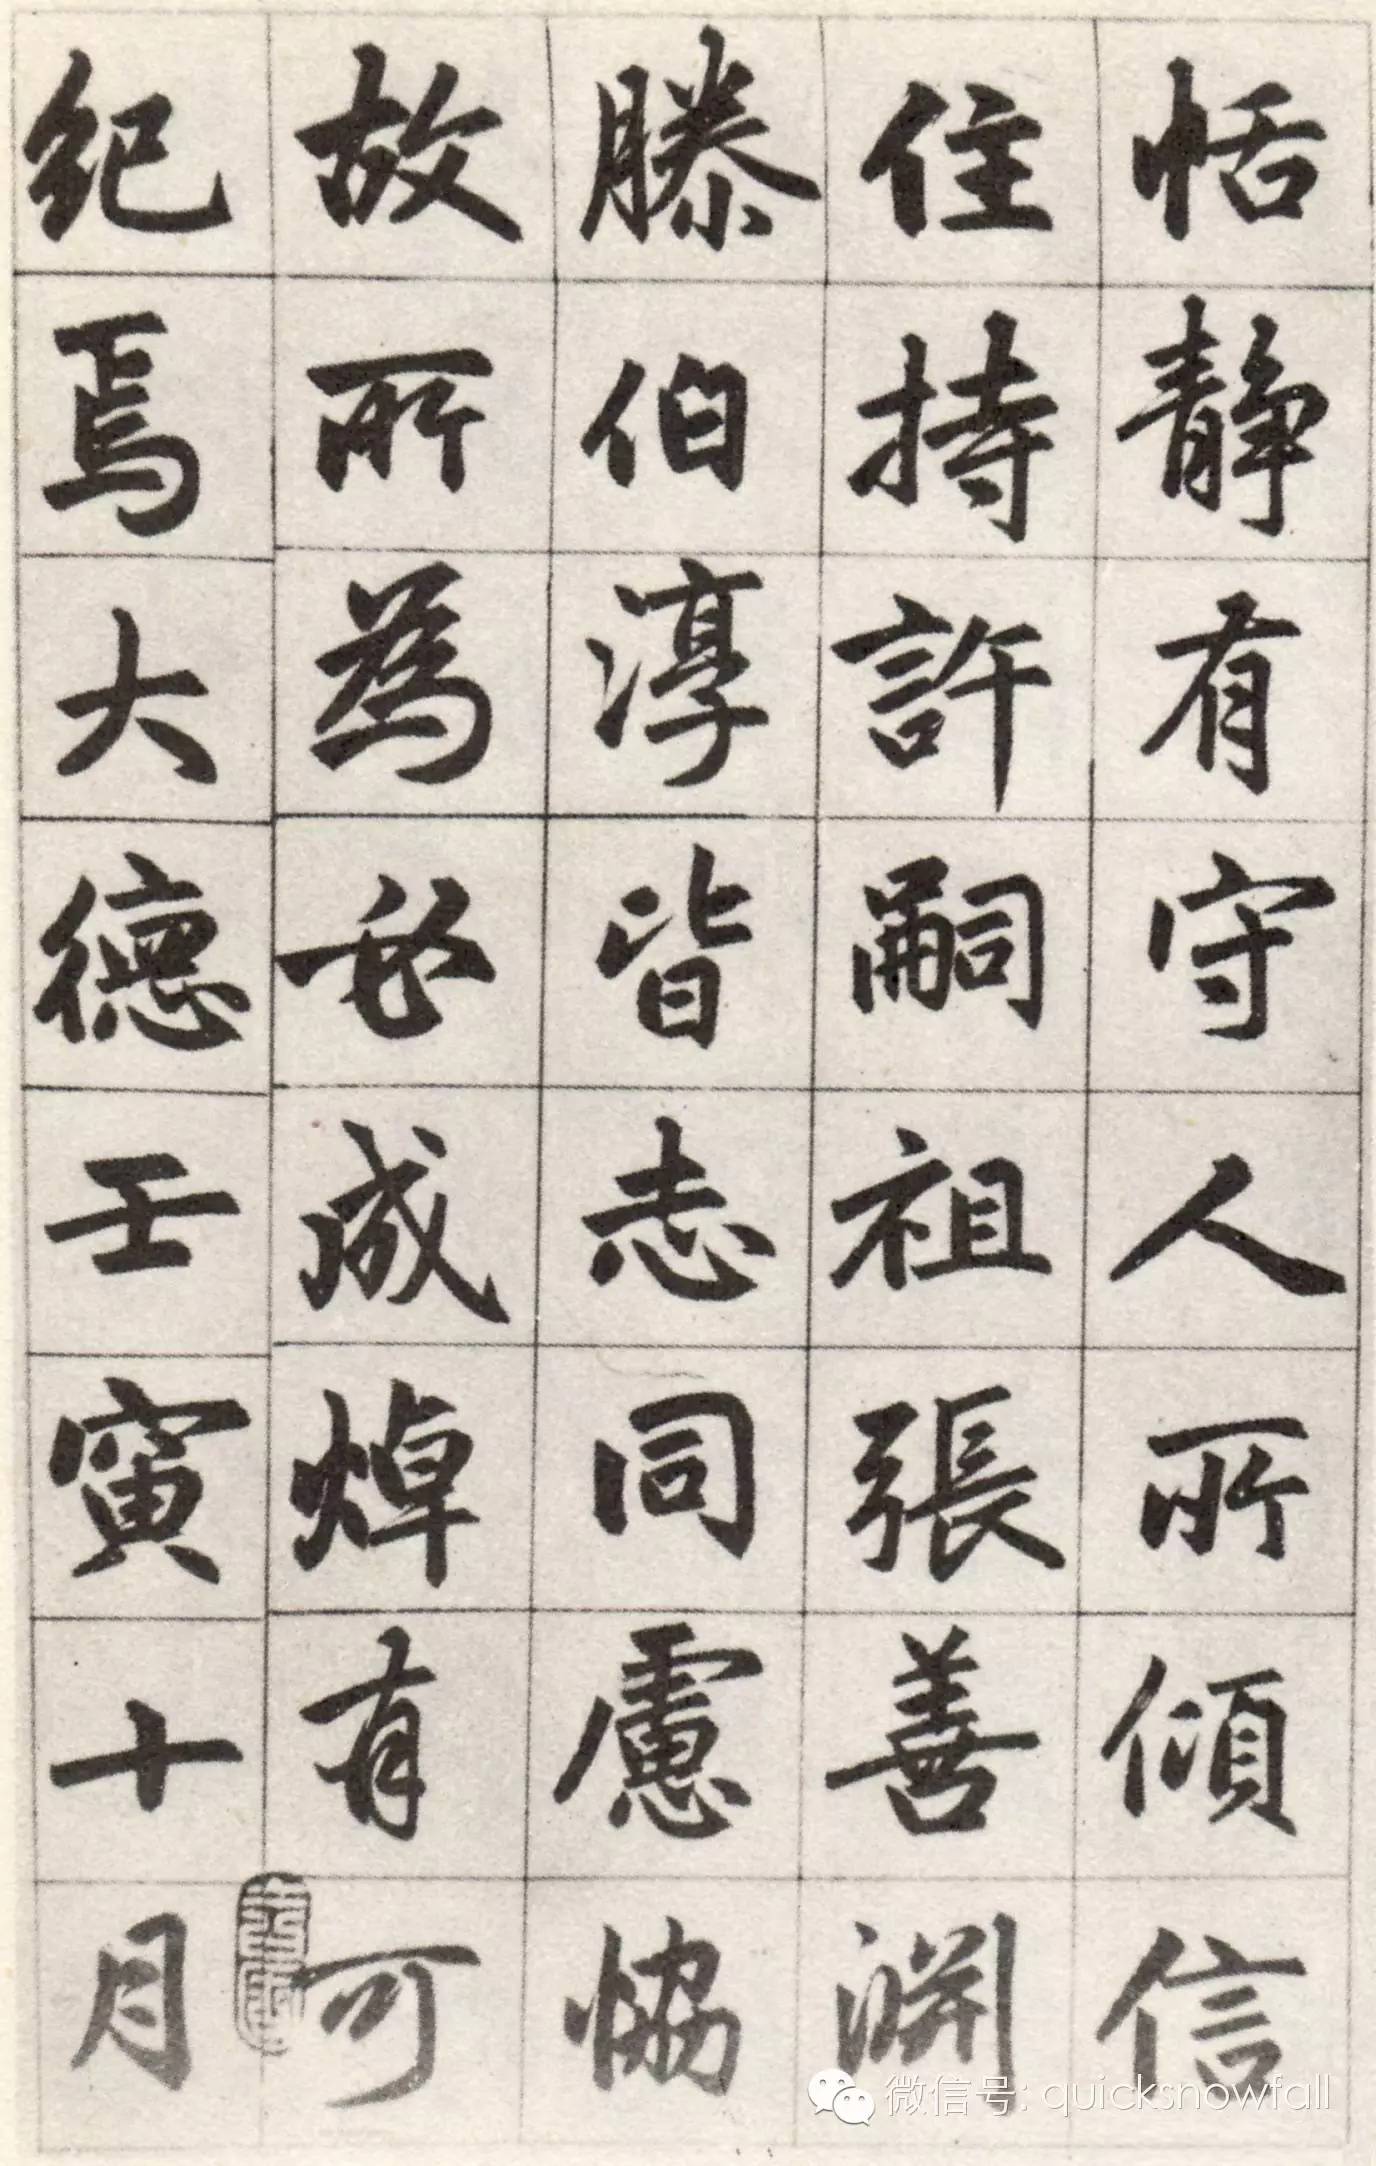 恬静有守人所傾信
住持許嗣祖張善淵
滕伯淳皆志同慮恊
故所為必成焯有可
紀焉大德壬寅十月
微信号: quicksnowfall